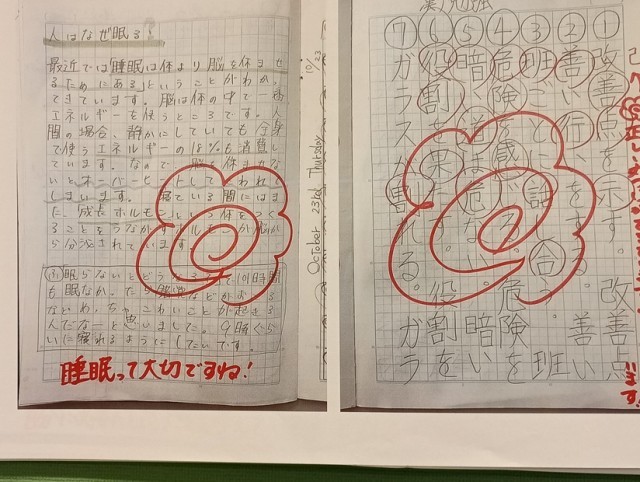 人はなぜ眠る?
最近では睡眠は体より脳を休ませ
るためにあるということがわか
てきています。脳は体の中で一番
エネルギーを使うところです。人
間の場合、静かにしていても全身
で使うエネルギーの18%も消費し
ています。なので、脳を休ませな
いとオーバーヒートしてこわれて
しまいます。寝ている間にはま
た、成長ホルモン
ることをうながす
ら分泌されています。
眠らないとどう
も眠なか
ないわ
こわいことが起き
んだなーと思いました。9時ぐら
いに寝れるようにしたいです。
睡眠って大切ですね!
10/23
October 23rd Thursday
①改善点を示す。改善点
②善い行いをする。善い
③班ごとに話し合う。班
④危険を感じる。危険を
⑤暗い道は危ない。暗い
⑥役割を果たす。役割を
⑦ガラスが割れる。ガラ